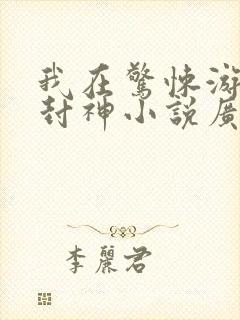 我在驚悚游
封神小說廣
李麗君